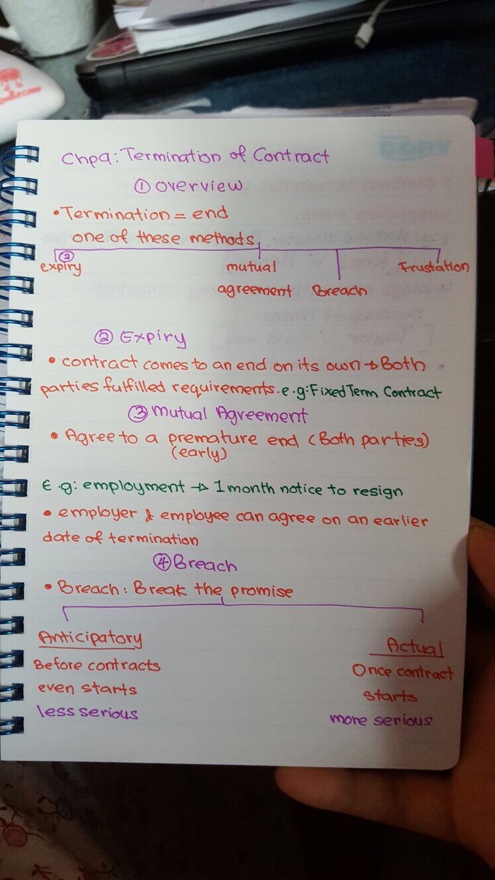 Chpa: Termination of Contract
① overview
• Termination = end
one of these methods
②
expiry
mutual
agreement
Breach
Frustation
② Expiry
• contract comes to an end on its own → Both
parties fulfilled requirements. e.g: Fixed Term Contract
③ Mutual Agreement
• Agree to a premature end (Both parties)
(early)
E g: employment → 1 month notice to resign
• employer & empoyee can agree on an earlier
date of termination
④ Breach
• Breach: Break the promise
Anticipatory
Before contracts
even starts
less serious
Actual
Once contract
starts
more serious